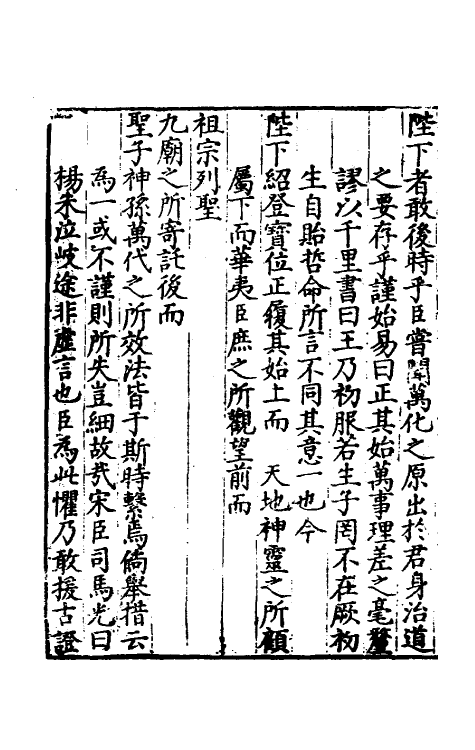 陛下者敢後時乎臣嘗聞萬化之原出於君身治道
之要存乎謹始易曰正其始萬事理差之毫釐
謬以千里書曰王乃初服若生子罔不在厥初
生自貽哲命所言不同其意一也今
陛下紹登寶位正履其始上而　天地神靈之所顧
屬下而華夷臣庶之所觀望前而
祖宗列聖
九廟之所寄託後而
聖子神孫萬代之所效法皆于斯時繫焉倘舉措云
爲一或不謹則所失豈細故哉宋臣司馬光曰
楊朱泣岐途非虛言也臣為此懼乃敢援古證